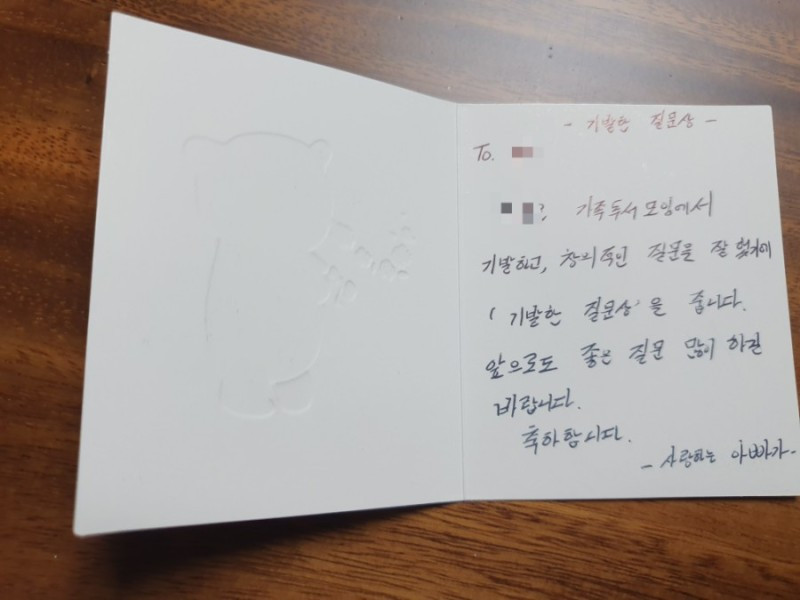 - 기발한 질문상 -
To.
? 가족독서모임에서
기발하고, 창의적인 질문을 잘 했기에
'기발한 질문상'을 줍니다.
앞으로도 좋은 질문 많이 하길
바랍니다.
축하합니다.
- 사랑하는 아빠가 -